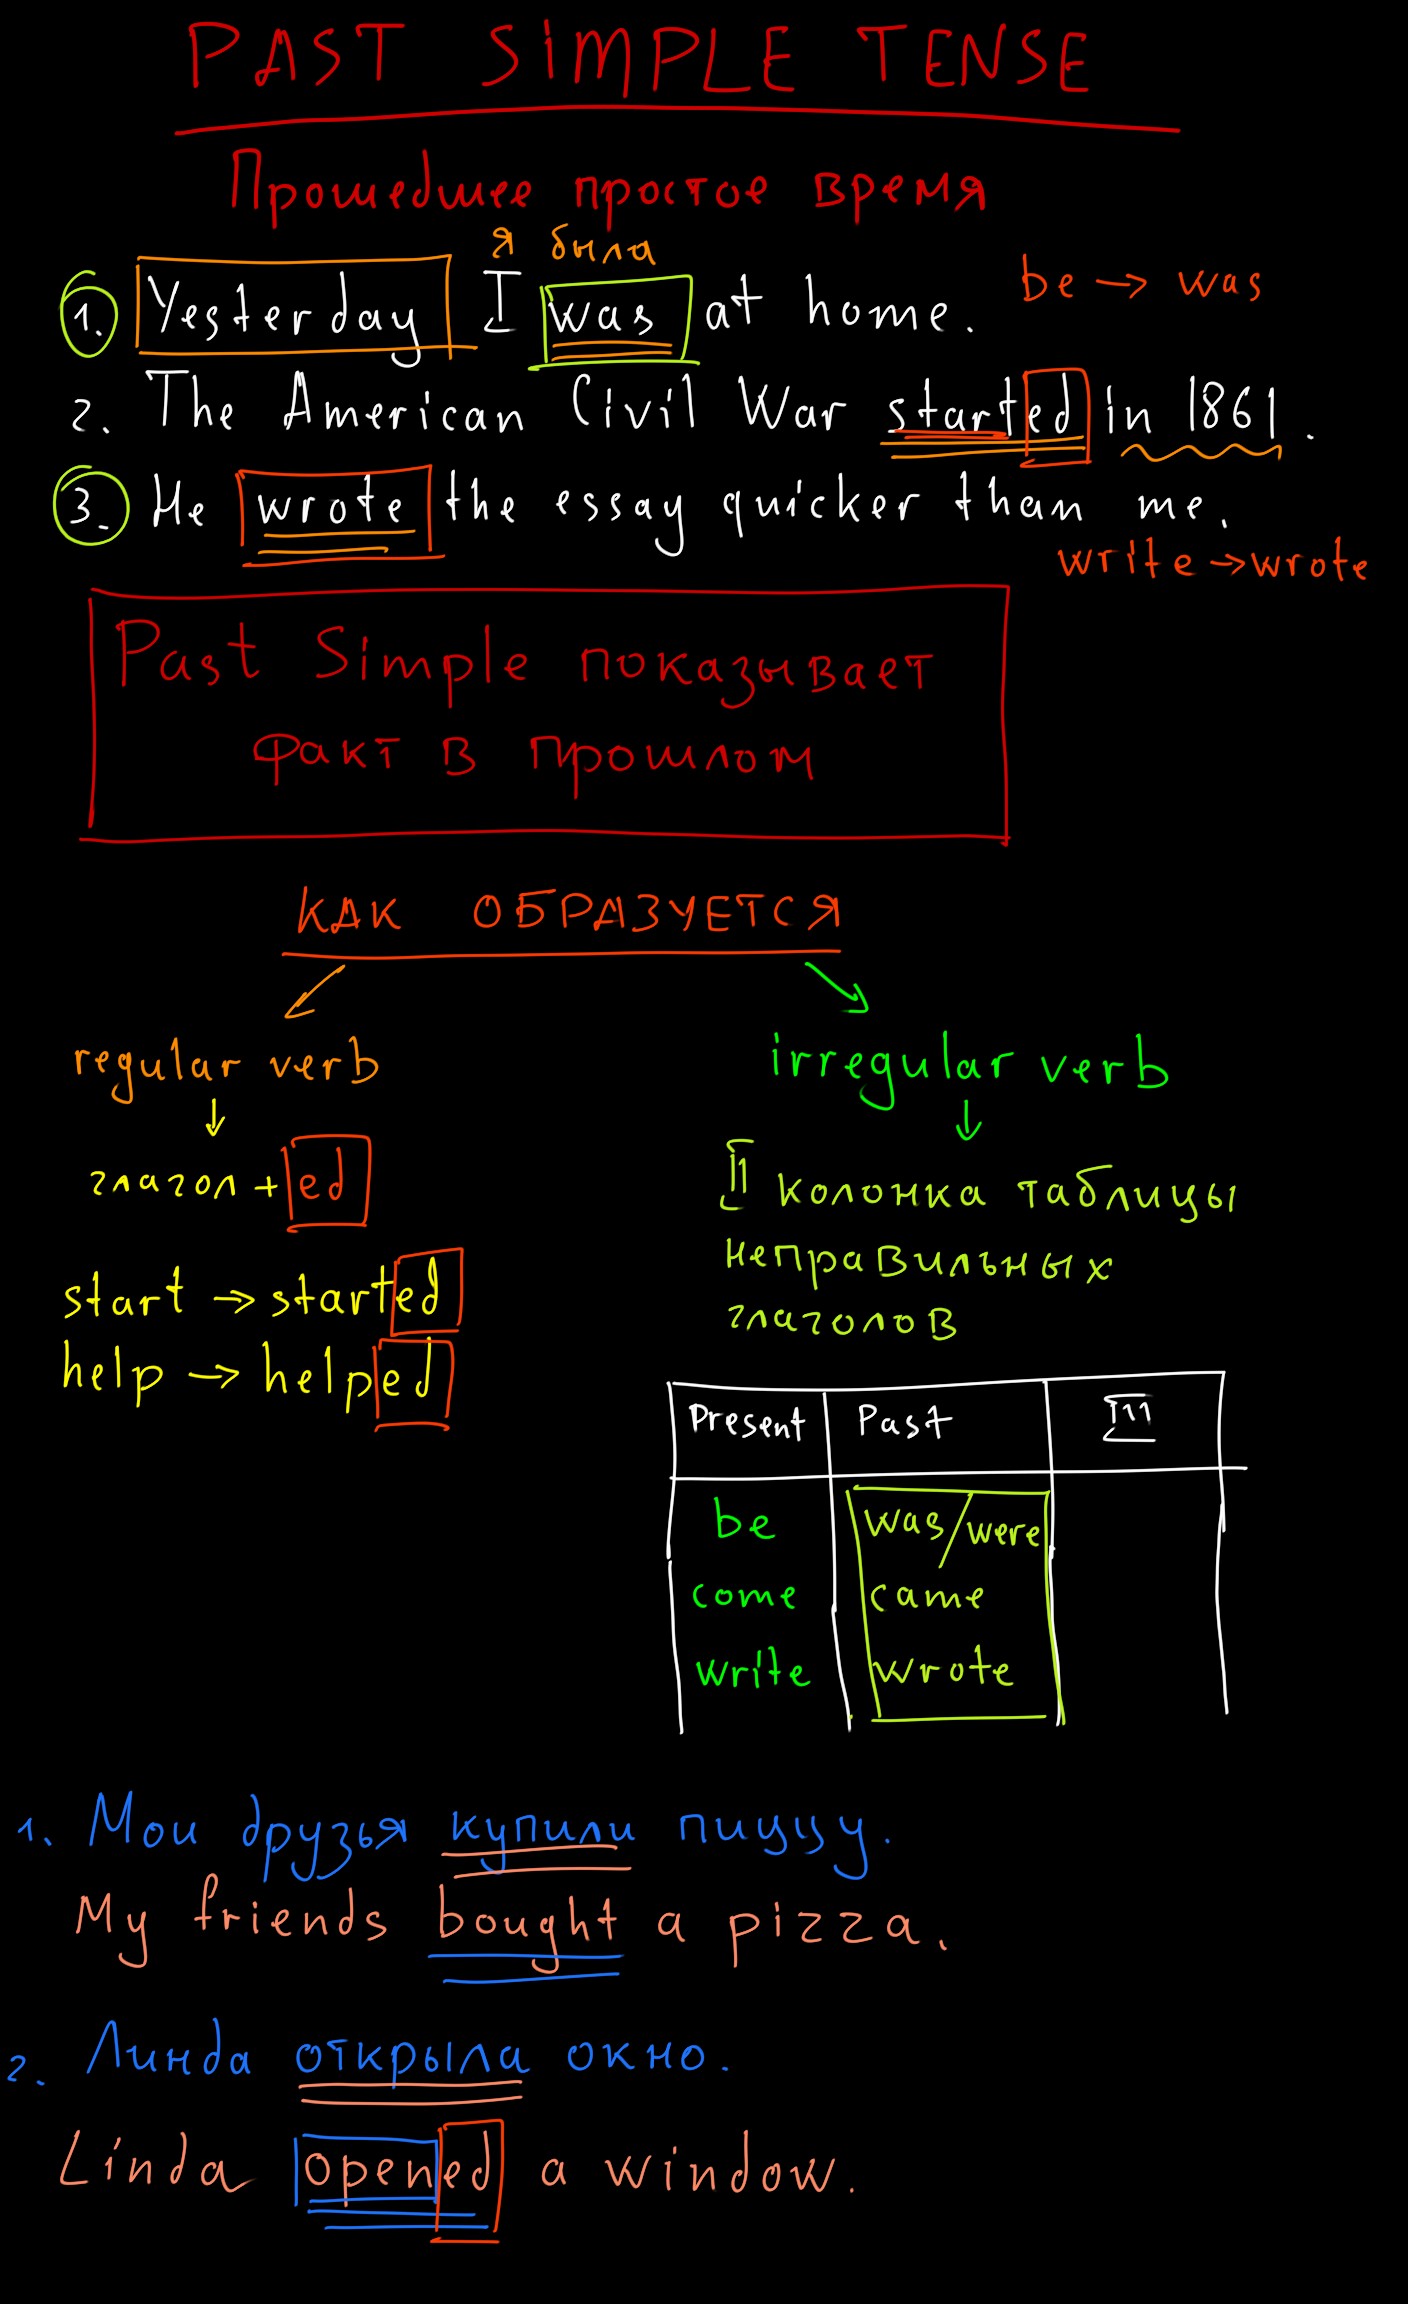 PAST SIMPLE TENSE
Прошедшее простое время
я была
1. Yesterday I was at home.
be → was
2. The American Civil War started in 1861.
3. He wrote the essay quicker than me.
write → wrote
Past Simple показывает
факт в прошлом
КАК ОБРАЗУЕТСЯ
regular verb
глагол + ed
start → started
help → helped
irregular verb
II колонка таблицы
неправильных
глаголов
Present Past III
be was/were
come came
write wrote
1. Мои друзья купили пиццу.
My friends bought a pizza.
2. Линда открыла окно.
Linda opened a window.